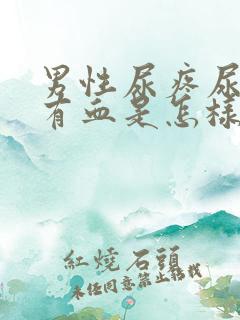 男性尿疼尿
有血是怎样
紅燒石頭
未经同意禁止转载